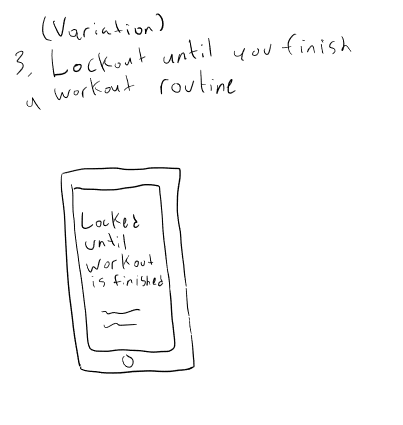 (Variation)
3. Lockout until you finish
a workout routine
Locked
until
workout
is finished